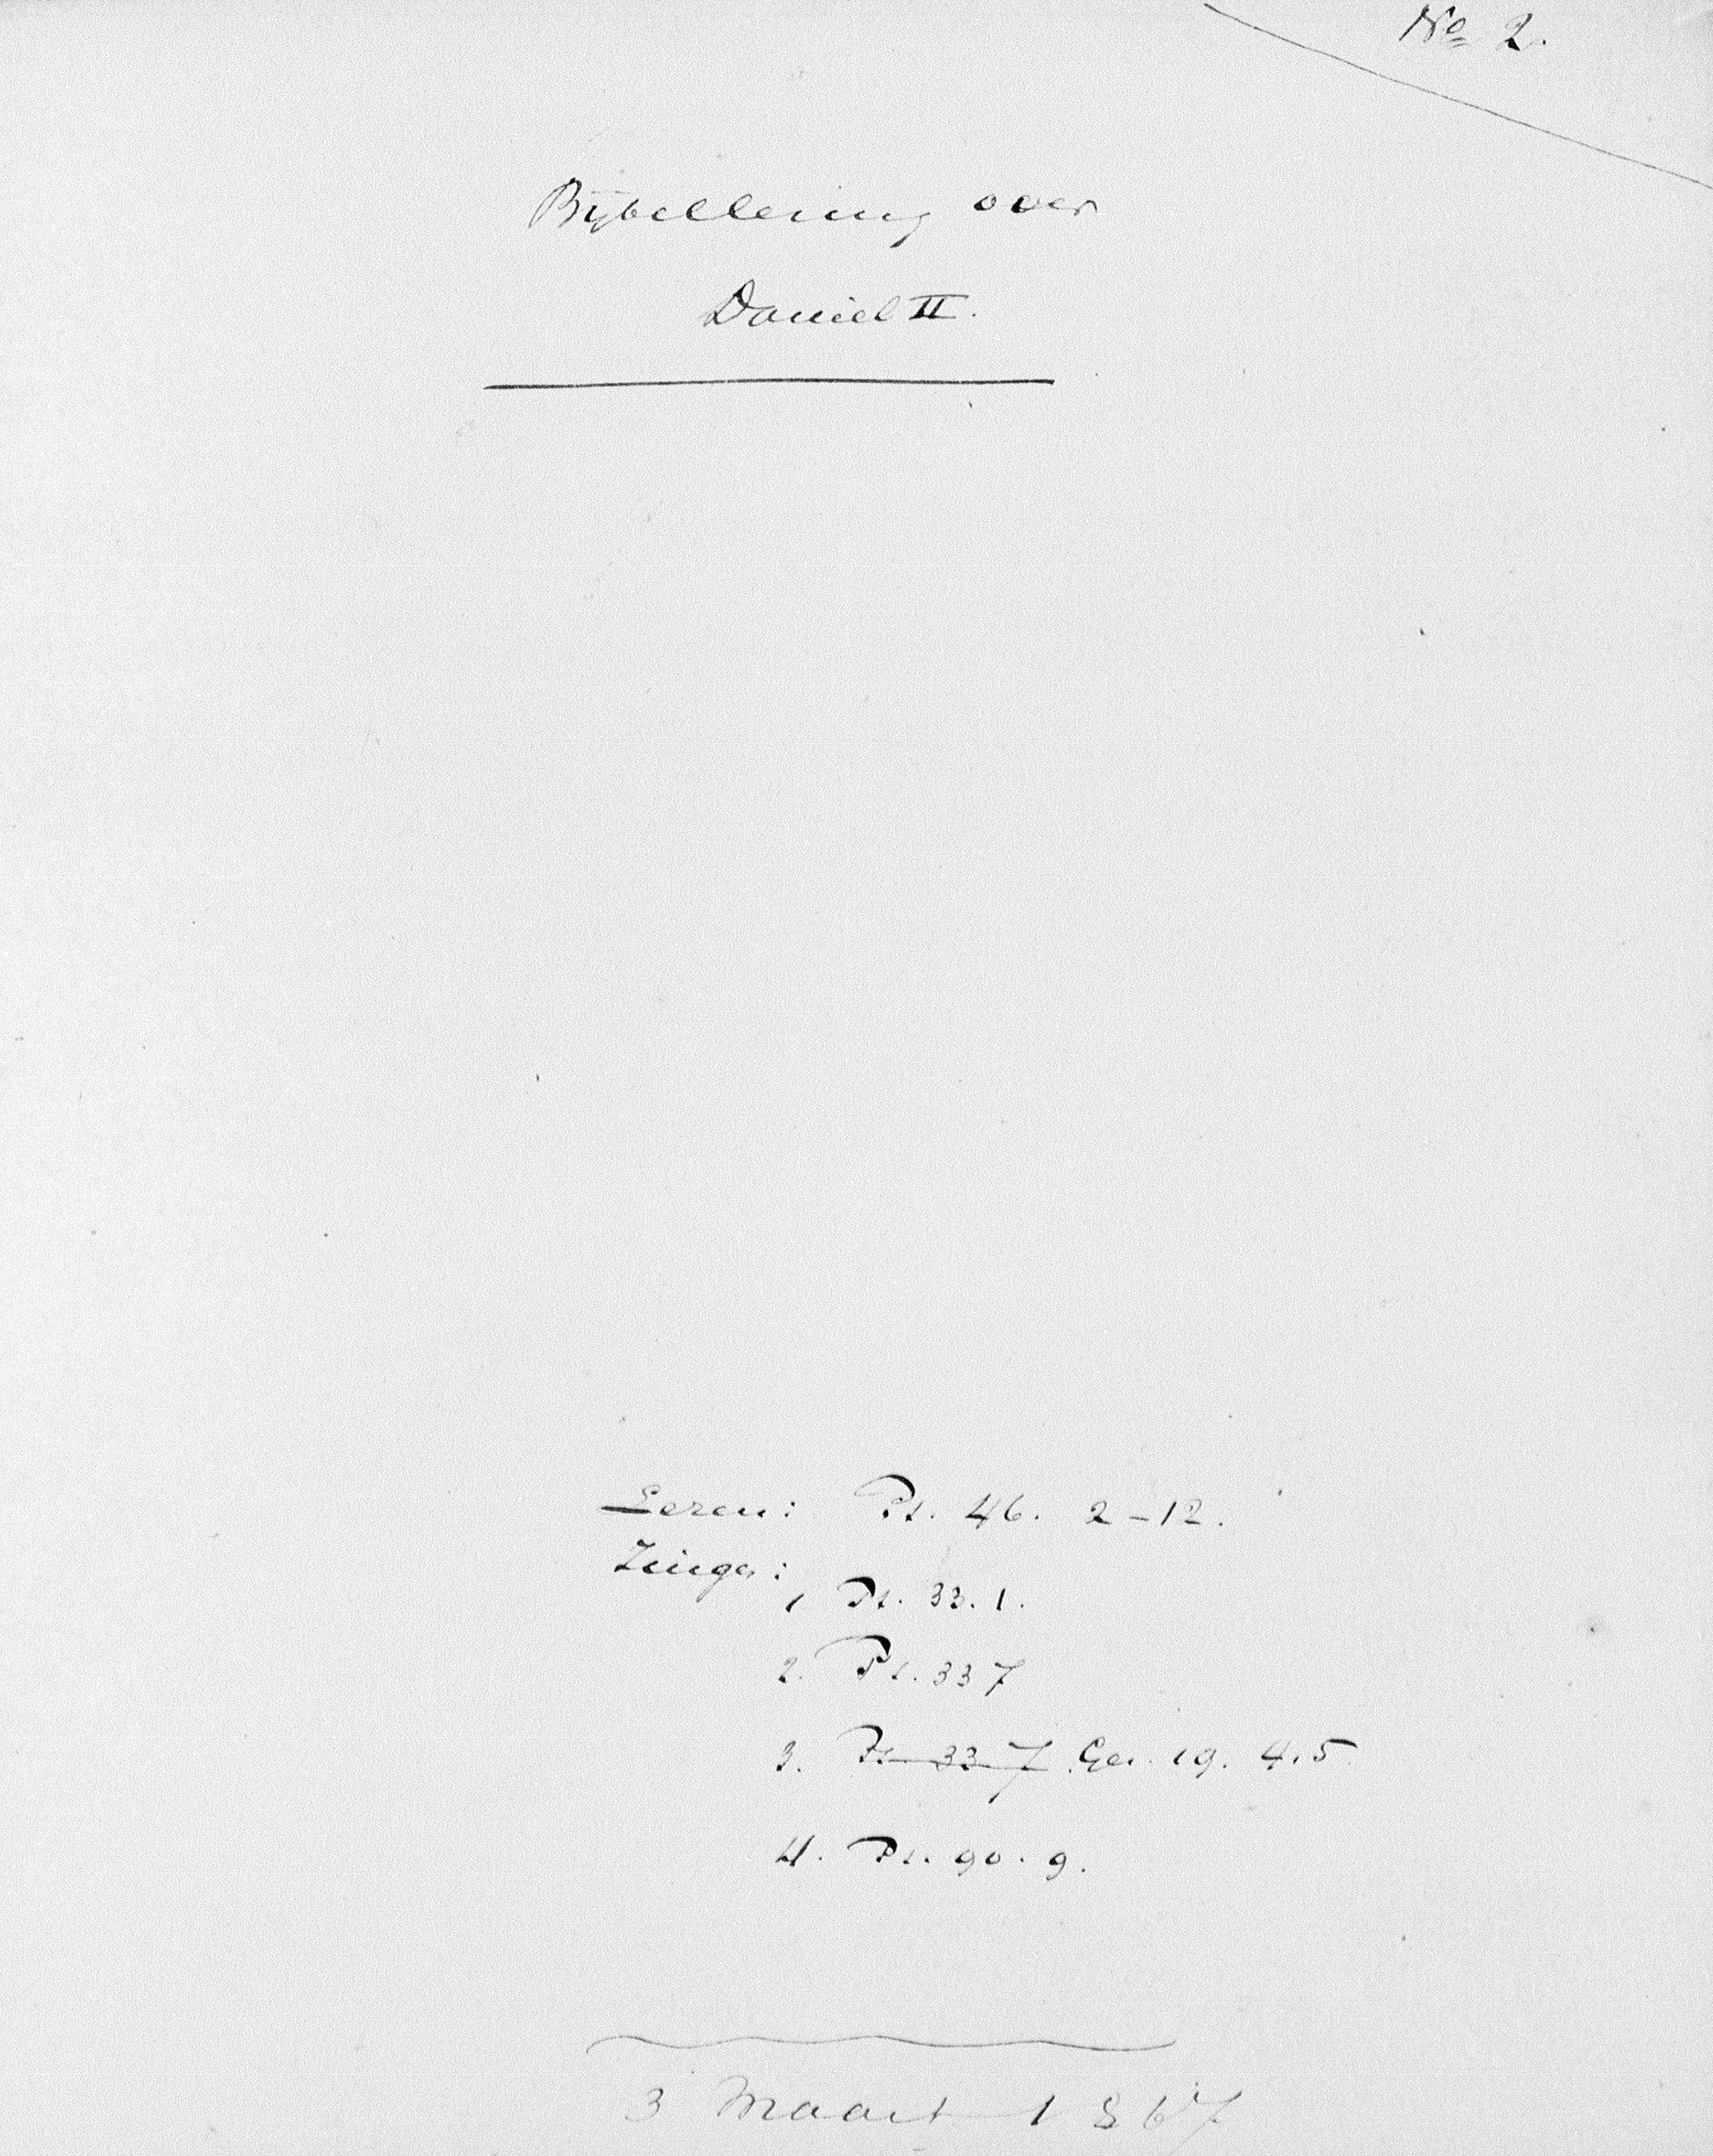 No 2.
Bijbellezing over
Daniel II.
Lezen: Ps. 46. 2-12.
Zingen:
1 Ps. 33. 1.
2. Ps. 33 7
3. Ps 33 7. Gez. 19. 4.5
4. Ps. 90. 9.
3 Maart 1867